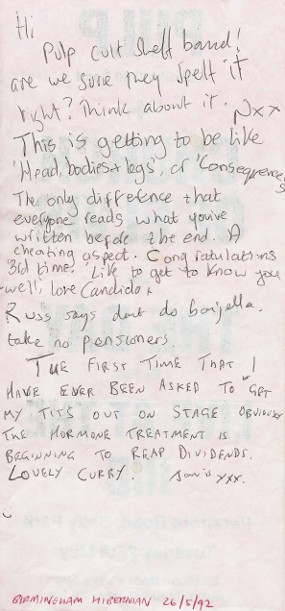 Hi
Pulp cult shelf band!
are we sure they spelt it
right? Think about it. Nxx
This is getting to be like
'Head, bodies + legs', or 'Consequences
The only difference that
everyone reads what you've
written before the end. A
cheating aspect. Congratulations
3rd time. Like to get to know you
well; love Candida x
Russ says dont do
take no pensioners.
THE FIRST TIME THAT I
HAVE EVER BEEN ASKED TO GET
MY TITS OUT ON STAGE OBVIOUSLY
THE HORMONE TREATMENT IS
BEGINNING TO REAP DIVIDENDS.
LOVELY CURRY. xxx.
BIRMINGHAM HIBERNIAN 26/5/92